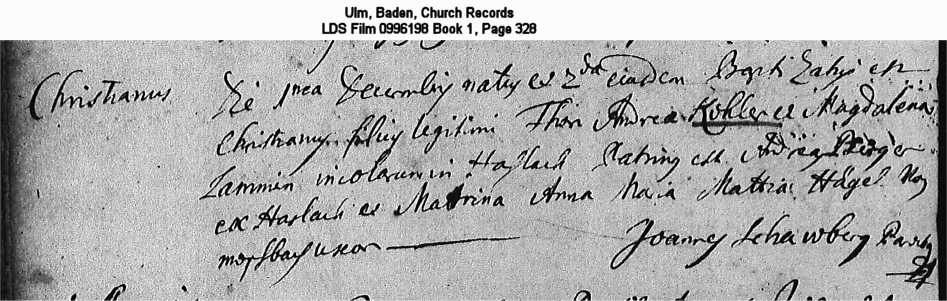 Ulm, Baden, Church Records
LDS Film 0996198 Book 1, Page 328
Christianus
Die 1ma Decembris natus et 2da eiusdem Baptizatus est
Christianus filius legitimi Thori Andrea Kohler et Magdalena
Lammin incolarum in Haslach Patrinus est Andreas
ex Haslach et Mattrina Anna Maria Mattia Hägel
uxor Joannes Schawberg